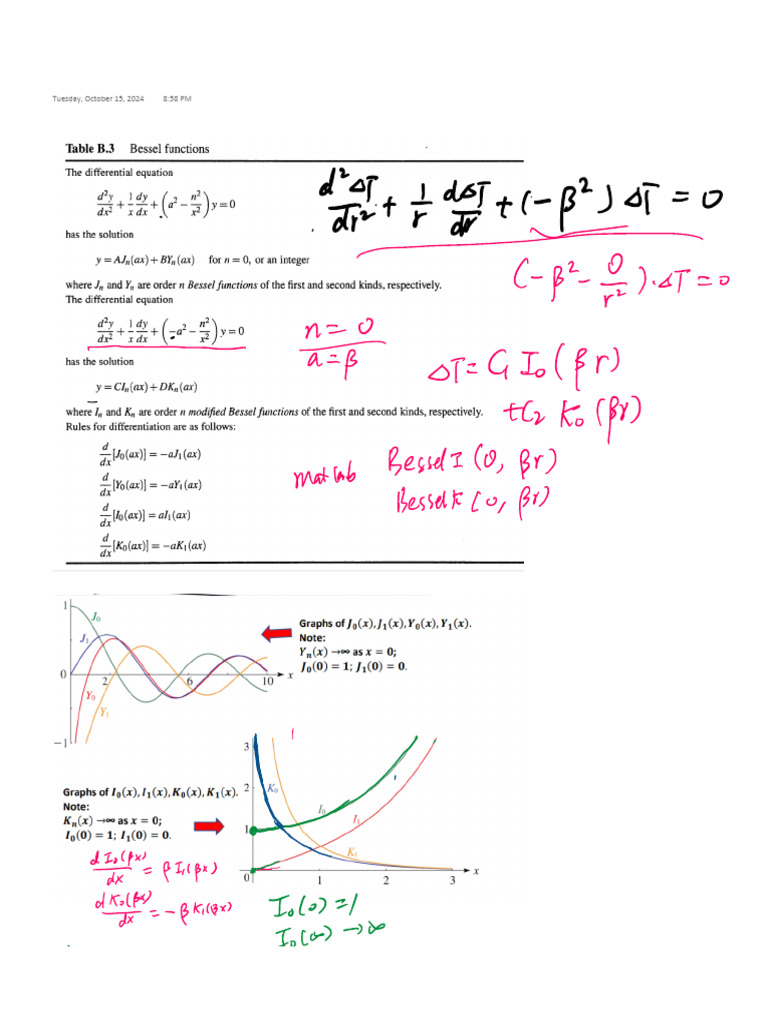 Tuesday, October 15, 2024 8:58 PM
Table B.3 Bessel functions
The differential equation
d²y/dx² + 1/x dy/dx + (a² − n²/x²) y = 0
d²ΔT/dr² + 1/r dΔT/dr + (−β²) ΔT = 0
has the solution
y = AJₙ(ax) + BYₙ(ax) for n = 0, or an integer
(−β² − 0/r²)·ΔT = 0
where Jₙ and Yₙ are order n Bessel functions of the first and second kinds, respectively.
The differential equation
d²y/dx² + 1/x dy/dx + (−a² − n²/x²) y = 0
n = 0
a = β
has the solution
ΔT = C₁ I₀(βr)
y = CIₙ(ax) + DKₙ(ax)
+C₂ K₀(βr)
where Iₙ and Kₙ are order n modified Bessel functions of the first and second kinds, respectively.
Rules for differentiation are as follows:
d/dx [J₀(ax)] = −aJ₁(ax)
d/dx [Y₀(ax)] = −aY₁(ax)
d/dx [I₀(ax)] = aI₁(ax)
d/dx [K₀(ax)] = −aK₁(ax)
matlab
Bessel I (0, βr)
Bessel K (0, βr)
1
J₀
J₁
0
2
6
10
x
Y₀
Y₁
−1
Graphs of J₀(x), J₁(x), Y₀(x), Y₁(x).
Note:
Yₙ(x) →∞ as x = 0;
J₀(0) = 1; J₁(0) = 0.
Graphs of I₀(x), I₁(x), K₀(x), K₁(x).
Note:
Kₙ(x) →∞ as x = 0;
I₀(0) = 1; I₁(0) = 0.
3
2
K₀
1
I₀
I₁
K₁
0
1
2
3
x
dI₀(βx)/dx = βI₁(βx)
dK₀(βx)/dx = −βK₁(βx)
I₀(0) = 1
I₀(∞) → ∞